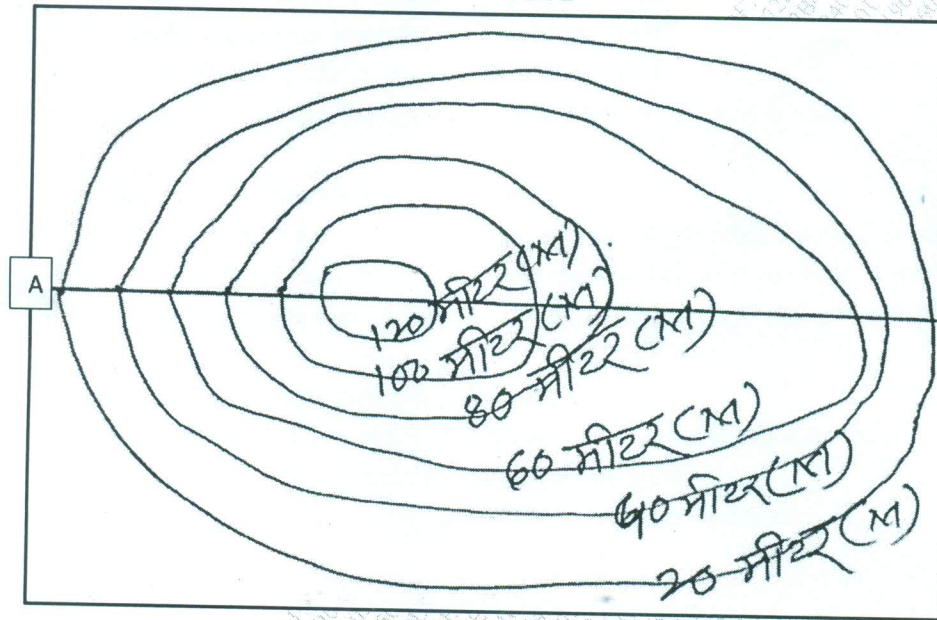 A
120 मीटर (M)
100 मीटर (M)
80 मीटर (M)
60 मीटर (M)
40 मीटर (M)
20 मीटर (M)